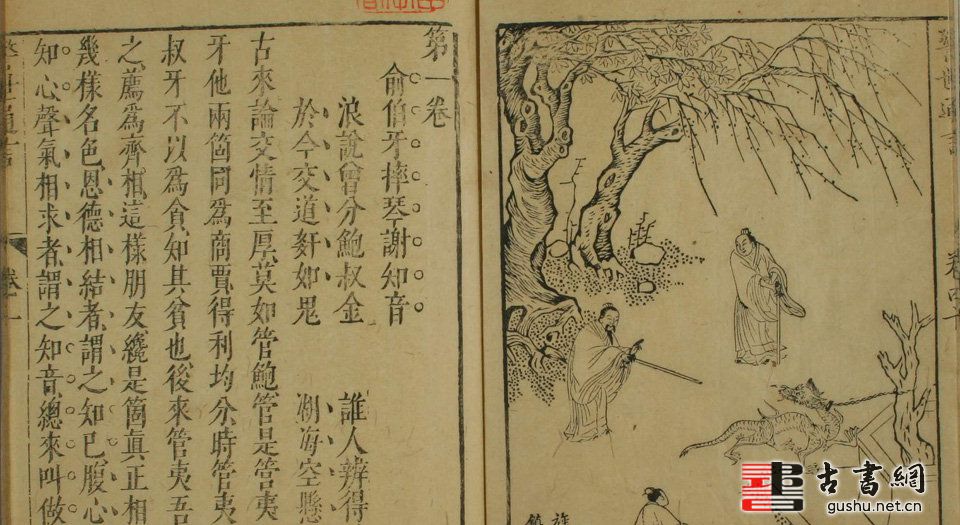 第一卷
俞伯牙摔琴謝知音
浪說曾分鮑叔金 誰人辨得
於今交道奸如鬼 湖海空懸
古來論交情至厚莫如管鮑管是管夷
牙他兩箇同爲商賈得利均分時管夷
叔牙不以爲貪知其貧也後來管夷吾
之薦爲齊相這樣朋友纔是箇眞正相
幾樣名色恩德相結者謂之知巳腹心
知心聲氣相求者謂之知音總來叫做
卷一
卷四十
古書網
gushu.net.cn